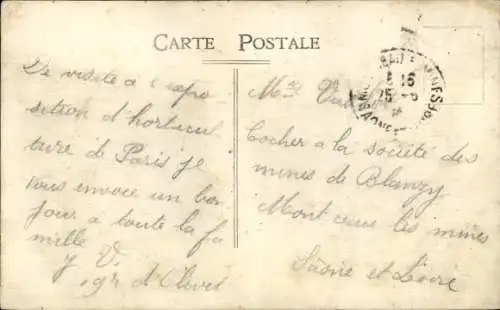 CARTE POSTALE
De visite a l'expo-
sition d'horticul-
ture de Paris je
vous envoie un bon
jour a toute la fa
mille
Mr
Cocher a la société des
mines de Blanzy
Montceau les mines
Saône et Loire